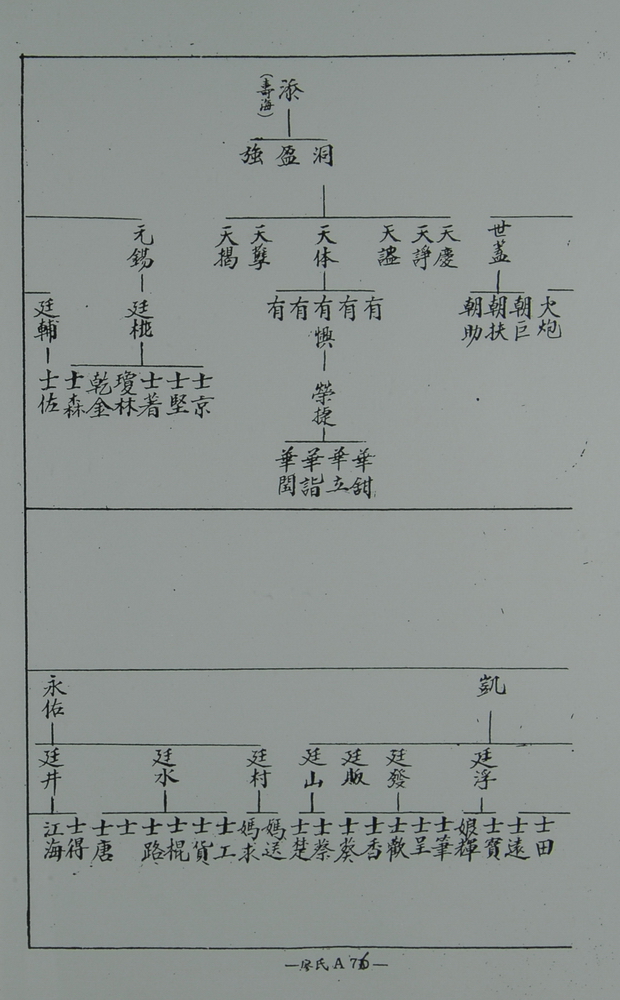 添
(壽海)
洞 盈 強
世蓋 天慶 天諍 天謐 天体 天孽 天揭 元錫
火炮 朝巨 朝扶 朝助 有 有 有懊 有 有 廷桃 廷輔
榮捷
士京 士堅 士著 瓊林 乾金 士森 士佐
華甜 華立 華詣 華閏
凱 永佑
廷浮 廷發 廷版 廷山 廷村 廷水 廷井
士田 士遠 士賓 娘輝 士筆 士呈 士歡 士香 士葵 士蔡 士楚 媽送 媽求 士工 士貨 士棍 士路 士 士唐 士得 江海
—廖氏 A 76—